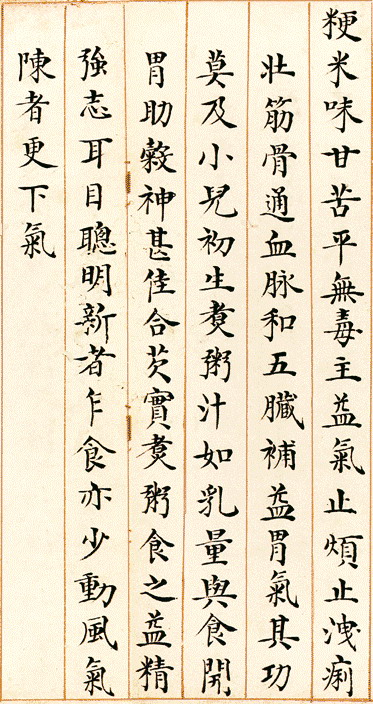 粳米味甘苦平無毒主益氣止煩止洩痢
壯筋骨通血脉和五臟補益胃氣其功
莫及小兒初生煑粥汁如乳量與食開
胃助榖神甚佳合芡實煑粥食之益精
強志耳目聰明新者乍食亦少動風氣
陳者更下氣